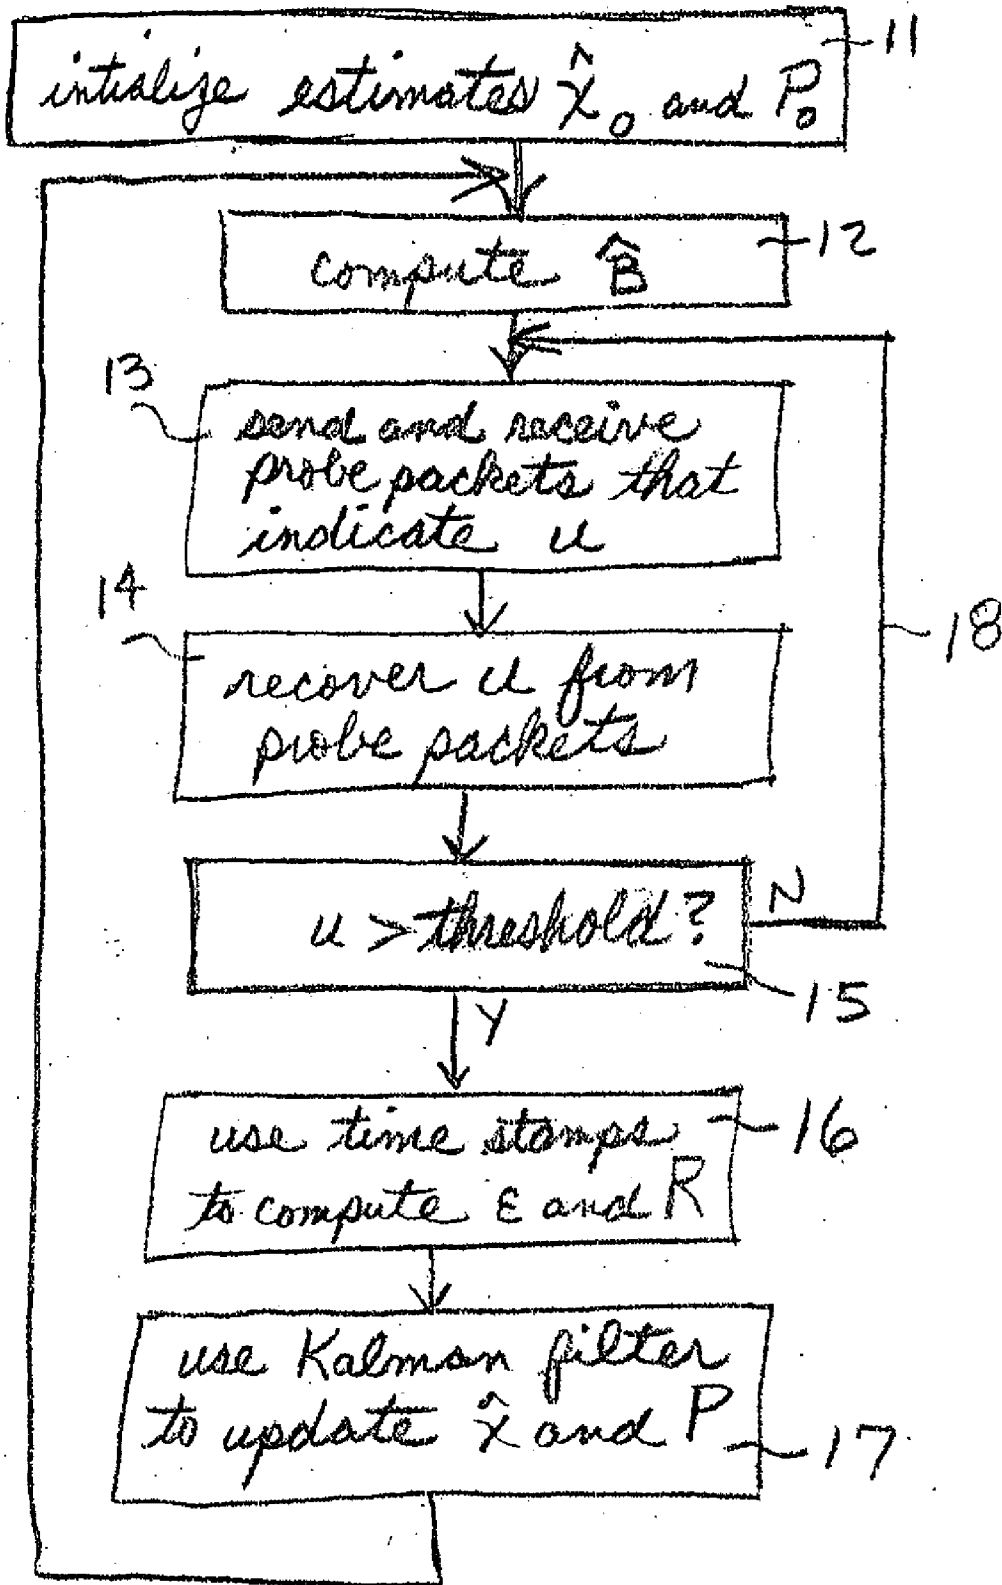 intialize estimates x̂₀ and P₀
11
compute B̂
12
13
send and receive
probe packets that
indicate u
14
recover u from
probe packets
18
u > threshold?
N
15
Y
use time stamps
to compute ε and R
16
use Kalman filter
to update x̂ and P
17